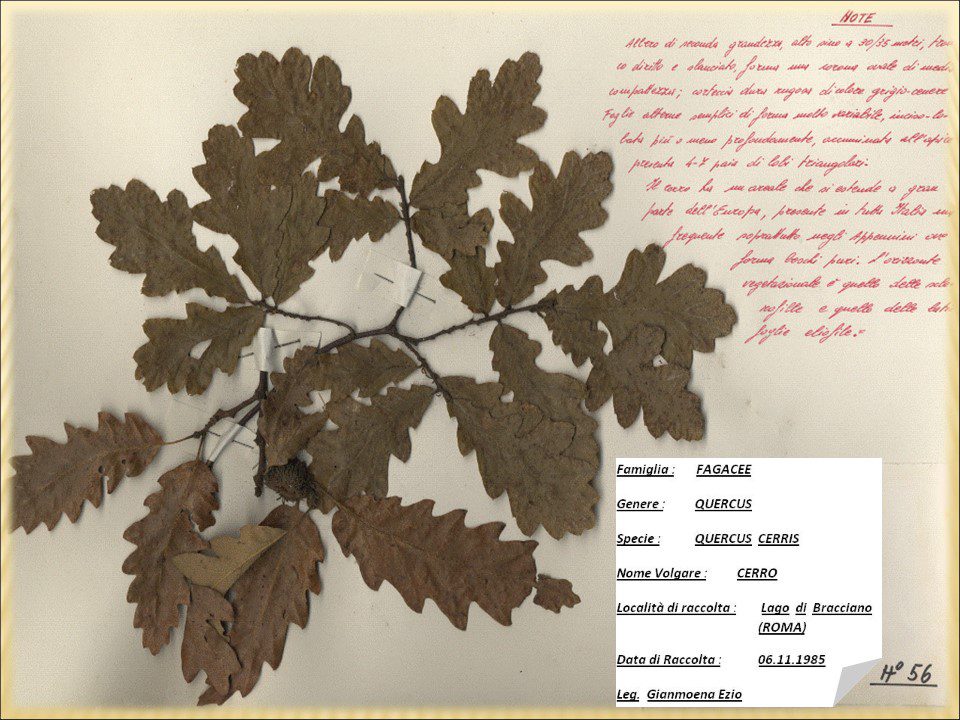 NOTE
Albero di seconda grandezza, alto sino a 30/35 metri, tron
co diritto e slanciato, forma una corona ovale di media
compattezza; corteccia dura rugosa di colore grigio-cenere
Foglie alterne semplici di forma molto variabile, inciso-lo-
bata più o meno profondamente, accuminata all'apice
presenta 4-7 paia di lobi triangolari.
Il cerro ha un areale che si estende a gran
parte dell'Europa, presente in tutti Italia
frequente soprattutto negli Appennini ove
forma boschi puri. L'orizzonte
vegetazionale è quello delle scle-
rofille e quello delle lati-
foglie eliofile.=
Famiglia : FAGACEE
Genere : QUERCUS
Specie : QUERCUS CERRIS
Nome Volgare : CERRO
Località di raccolta : Lago di Bracciano
(ROMA)
Data di Raccolta : 06.11.1985
Leg. Gianmoena Ezio
N° 56